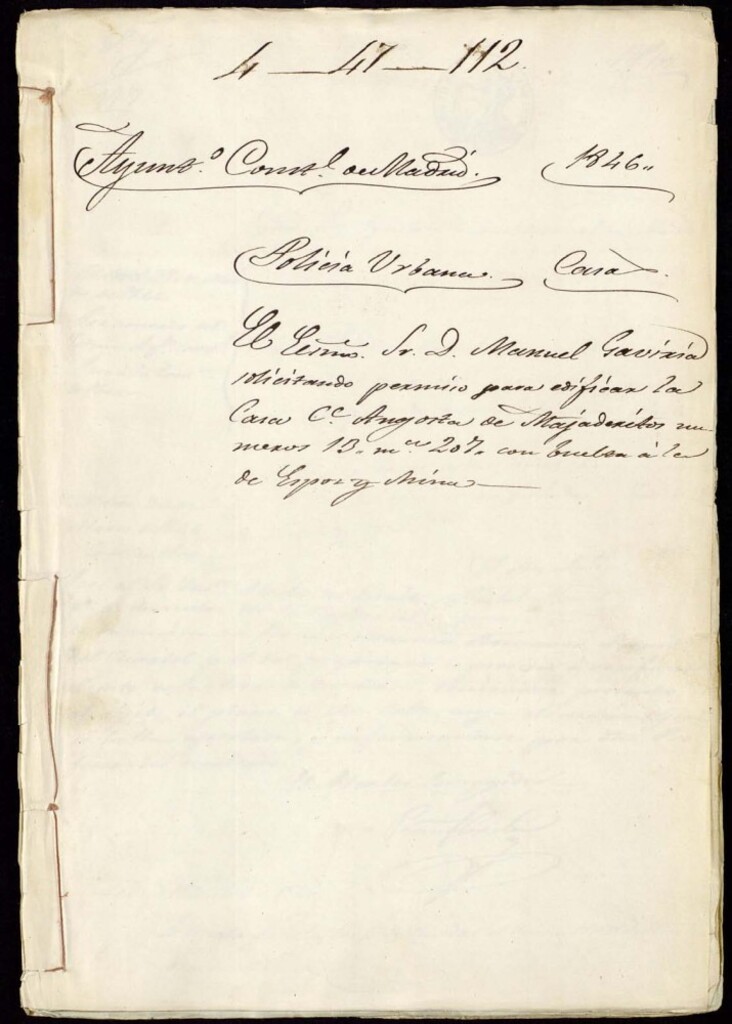 4 — 47 — 112.
Ayunt.º Const.l de Madrid. 1846.,
Policia Urbana. Casa.
El Excmo. Sr. D. Manuel Gaviria
solicitando permiso para edificar la
Casa C.e Angosta de Majaderitos nu
meros 13. m.na 207. con buelta à la
de Espoz y Mina —